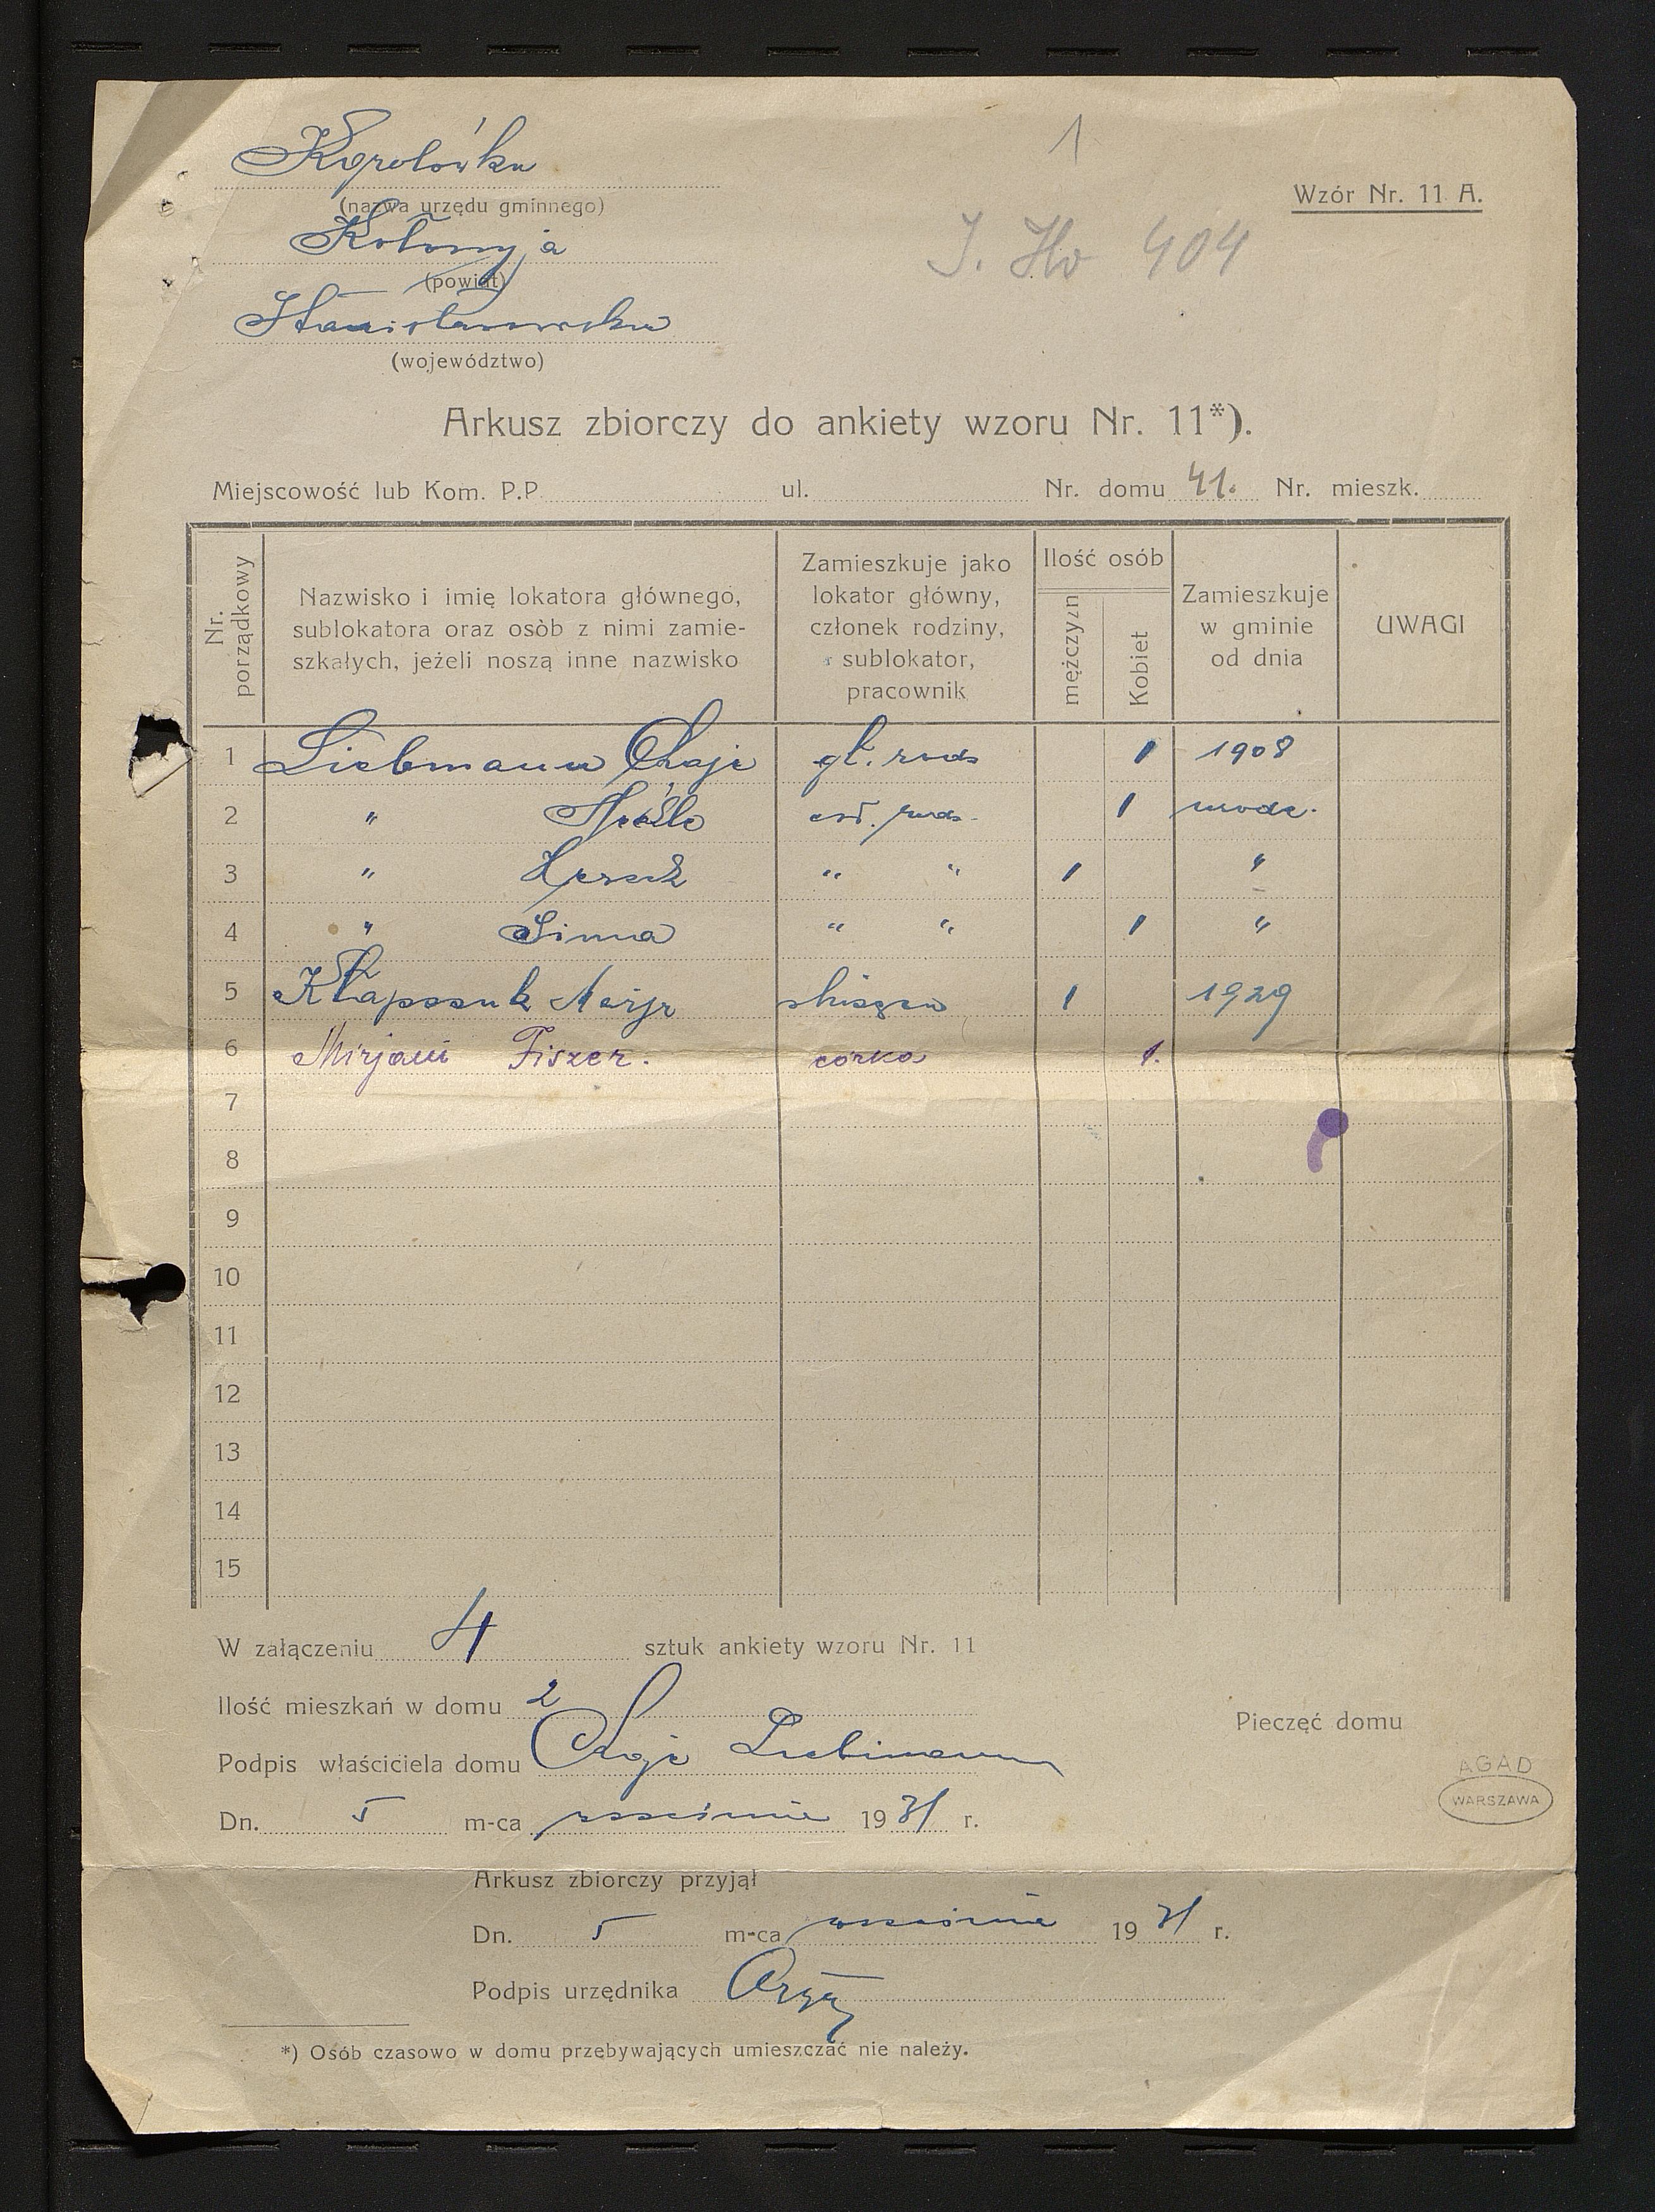 1
Korolówka
(nazwa urzędu gminnego)
Wzór Nr. 11 A.
Kołomyja
(powiat)
404
Stanisławowskie
(województwo)
Arkusz zbiorczy do ankiety wzoru Nr. 11*).
Miejscowość lub Kom. P.P. ul. Nr. domu 41. Nr. mieszk.
Nr. porządkowy
Nazwisko i imię lokatora głównego,
sublokatora oraz osòb z nimi zamie-
szkałych, jeżeli noszą inne nazwisko
Zamieszkuje jako
lokator główny,
członek rodziny,
sublokator,
pracownik
Ilość osób
mężczyzn
Kobiet
Zamieszkuje
w gminie
od dnia
UWAGI
1 Liebmann Chaje gł. rodz 1 1908
2 " czł. rodz. 1 urodz.
3 " Hersch " " 1 "
4 " " " 1 "
5 1 1929
6 Mirjam Fiszer. córka 1.
7
8
9
10
11
12
13
14
15
W załączeniu 4 sztuk ankiety wzoru Nr. 11
Ilość mieszkań w domu 2
Pieczęć domu
Podpis właściciela domu Chaje Liebmann
AGAD
WARSZAWA
Dn. 5 m-ca września 1931 r.
Arkusz zbiorczy przyjął
Dn. 5 m-ca września 1931 r.
Podpis urzędnika
*) Osób czasowo w domu przebywających umieszczać nie należy.